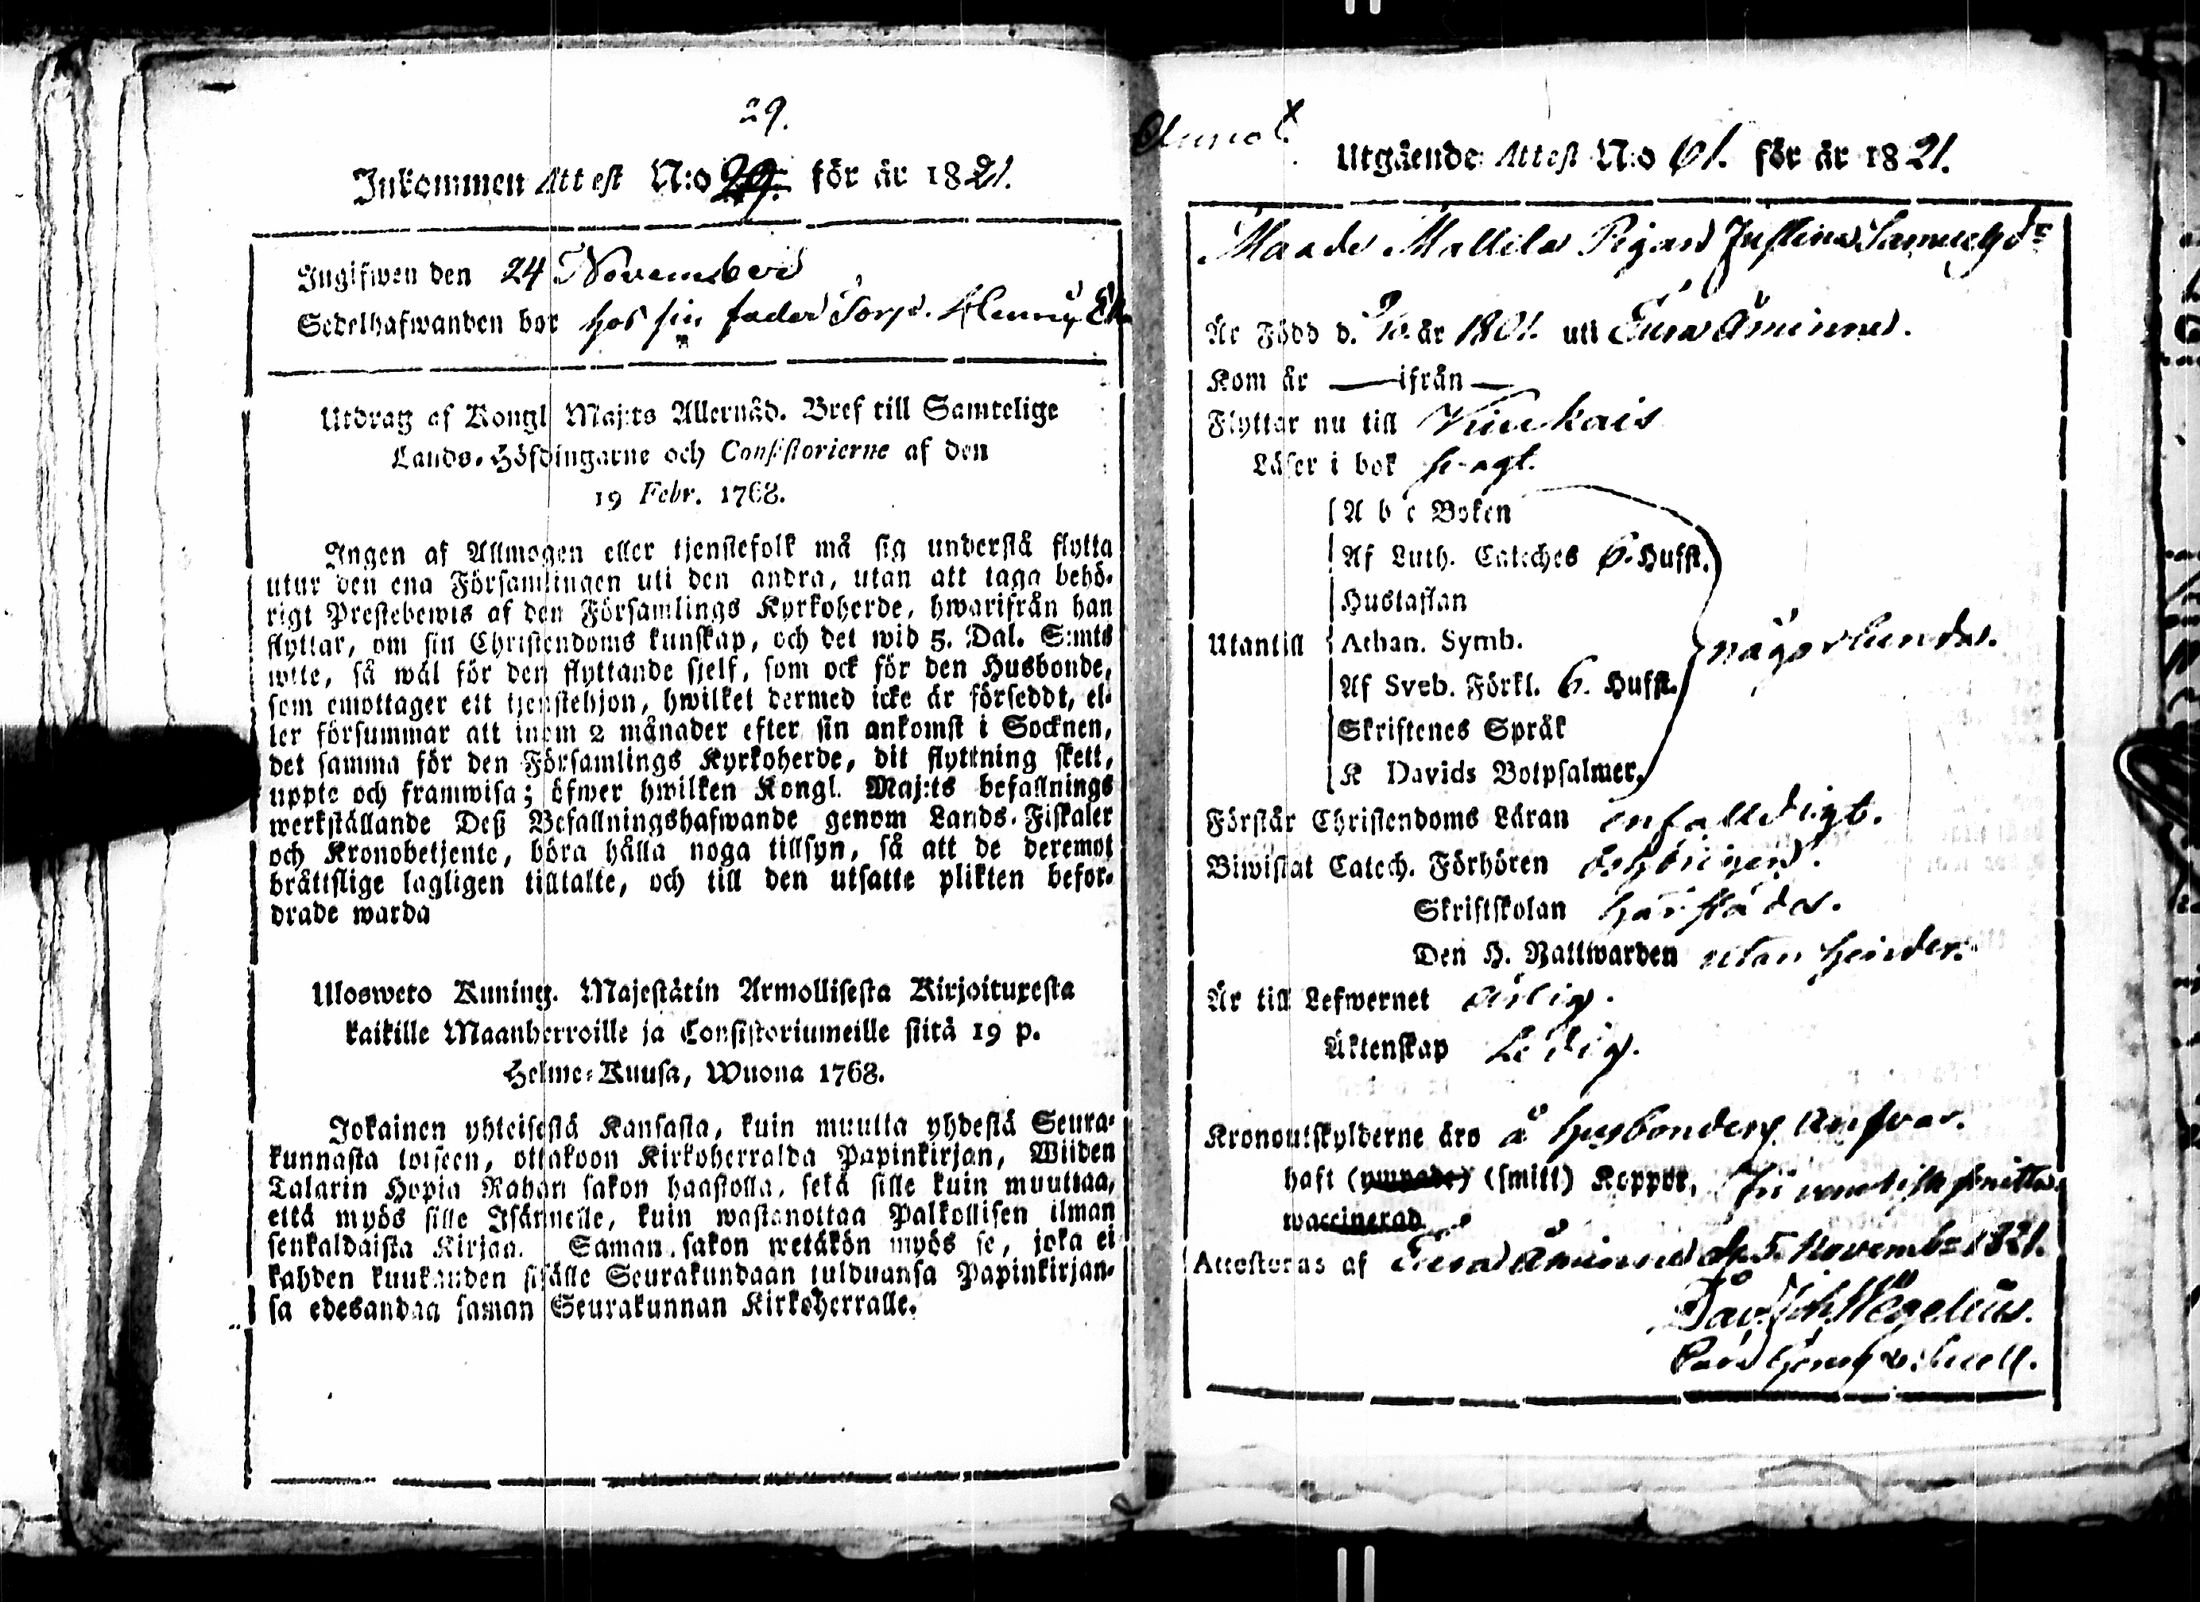 29.
Inkommen Attest N:o 29. för år 1821.
Ingifwen den 24 November
Sedelhafwanden bor hos sin fader Torp.
Utdrag af Kongl Maj:ts Allernåd. Bref till Samtelige
Lands-Höfdingarne och Consistorierne af den
19 Febr. 1768.
Ingen af Allmogen eller tjenstefolk må sig understå flytta
utur den ena Församlingen uti den andra, utan att taga behö-
rigt Prestebewis af den Församlings Kyrkoherde, hwarifrån han
flyttar, om sin Christendoms kunskap, och det wid 5. Dal. S:mts
wite, så wäl för den flyttande sjelf, som ock för den Husbonde,
som emottager ett tjenstehjon, hwilket dermed icke är förseddt, el-
ler försummar att inom 2 månader efter sin ankomst i Socknen,
det samma för den Församlings Kyrkoherde, dit flyttning skett,
uppte och framwisa; öfwer hwilken Kongl. Maj:ts befallnings
werkställande Deß Befallningshafwande genom Lands-Fiskaler
och Kronobetjente, böra hålla noga tillsyn, så att de deremot
bråttslige lagligen tilltalte, och till den utsatte plikten befor-
drade warda
Uloswero Kuning. Majestätin Armollisesta Kirjoituxesta
kaikille Maanherroille ja Consistoriumeille siitä 19 p.
Helme-Kuusa, Wuona 1768.
Jokainen yhteisestä Kansasta, kuin muutta yhdestä Seura-
kunnasta toiseen, ottakoon Kirkoherralda Papinkirjan, Wiiden
Talarin Hopia Rahan sakon haastolla, sekä sille kuin muuttaa,
että myös sille Isännelle, kuin wastanottaa Palkollisen ilman
senkaldaista Kirjaa. Saman sakon wetäkön myös se, joka ei
kahden kuukauden sisälle Seurakundaan tulduansa Papinkirjan-
sa edesandaa saman Seurakunnan Kirkoherralle.
Utgående Attest N:o 61. för år 1821.
Pigan Justina Samuelsdr
Är Född d. år 1801. uti Eura Åminne.
Kom år — ifrån —
Flyttar nu till
Läser i bok
A b c Boken
Af Luth. Cateches 6. Hufst.
Hustaflan
Utantill Athan. Symb. någorlunda.
Af Sveb. Förkl. 6. Hufst.
Skriftenes Språk
K Davids Botpsalmer,
Förstår Christendoms Läran enfaldigt.
Biwistat Catech. Förhören behörigen.
Skriftskolan härstädes.
Den H. Nattwarden utan hinder.
Är till Lefwernet ärlig.
Äktenskap Ledig.
Kronoutskylderne äro å Husbondens answar.
haft (ympade) (smitt) Koppor,
waccinerad
Attesteras af Eura Åminne d. 5. November 1821.
Dav. Joh. Wegelius.